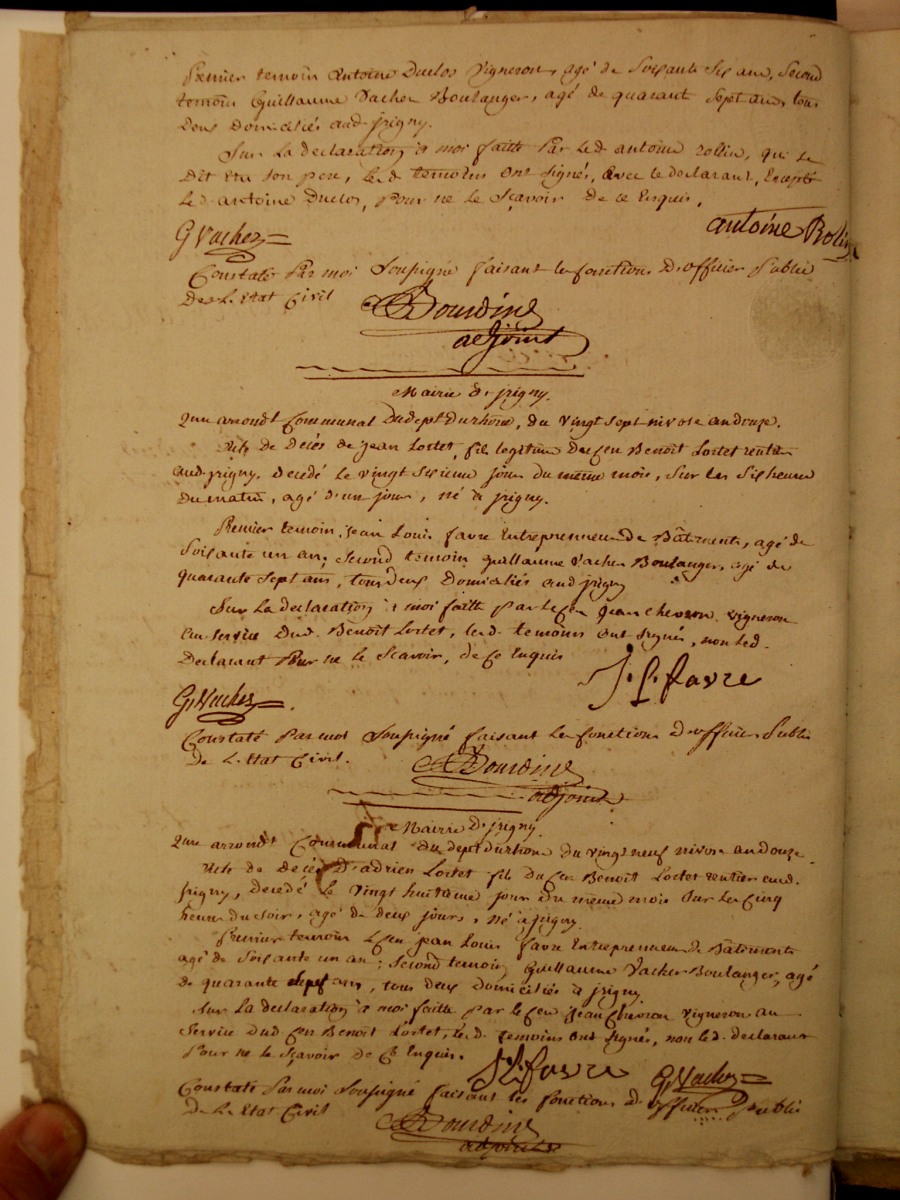 Premier temoin Antoine Duclos Vigneron, agé de Soixante Six ans, Second
temoin Guillaume Vacher Boulanger, agé de quarant Sept ans, tous
Deux Domiciliés aud jrigny.
Sur La declaration à moi faitte Par Led. antoine rollin, qui se
Dit Etre Son pere, Les d temoins ont signés, avec le declarant, Excepté
Led. antoine Duclos, Pour ne le Sçavoir de ce Enquis.
antoine Rolin
G Vacher
Constaté Par moi Soussigné faisant les fonctions D'officier Public
De L'Etat Civil
Bourdin
adjoint
Mairie de jrigny.
arrondt Communal Dudept Durhône, du Vingt Sept nivose an douze.
Acte de Décès de jean Lortet, fils legitime du Cen Benoît Lortet rentier
aud. jrigny. Decedé Le vingt Sixieme jour Du même mois, Sur les Six heures
Du matin, agé D'un jour, né à jrigny.
Premier temoin, jean Louis favre Entrepreneur De Bâtiments, agé de
Soixante un ans, Second temoin guillaume Vacher Boulanger, agé de
quarante Sept ans, tous Deux Domiciliés aud jrigny
Sur La declaration à moi faitte par Le Cen jean Chevron vigneron
au Service Dud. Benoît Lortet, les d. temoins ont signés, non led.
Declarant Pour ne le Scavoir, de Ce Enquis
J. L. favre
G. Vacher.
Constaté Par moi Soussigné faisant Les fonctions d'officier Public
de L'Etat Civil.
Bourdin
adjoint
Mairie D'jrigny.
arrondt Communal du dept durhone du vingt neuf nivose an douze.
Acte de Décès D'adrien Lortet fils du Cen Benoît Lortet rentier aud.
jrigny, decedé Le Vingt huitieme jour du même mois Sur les Cinq
heures du Soir, agé de deux jours, né à jrigny
Premier temoin le Cen jean Louis favre Entrepreneur de Bâtiments
agé de Soixante un an; Second temoin Guillaume Vacher Boulanger, agé
de quarante Sept ans, tous deux domiciliés à jrigny
Sur La declaration à moi faitte par le Cen jean Chevron vigneron au
Service dud Cen Benoît Lortet, les d. temoins ont signés, non led. declarant
Pour ne le Sçavoir de Ce Enquis.
J. L. favre G. Vacher
Constaté Par moi Soussigné faisant les fonctions d'officier Public
de L'Etat Civil
Bourdin
adjoint